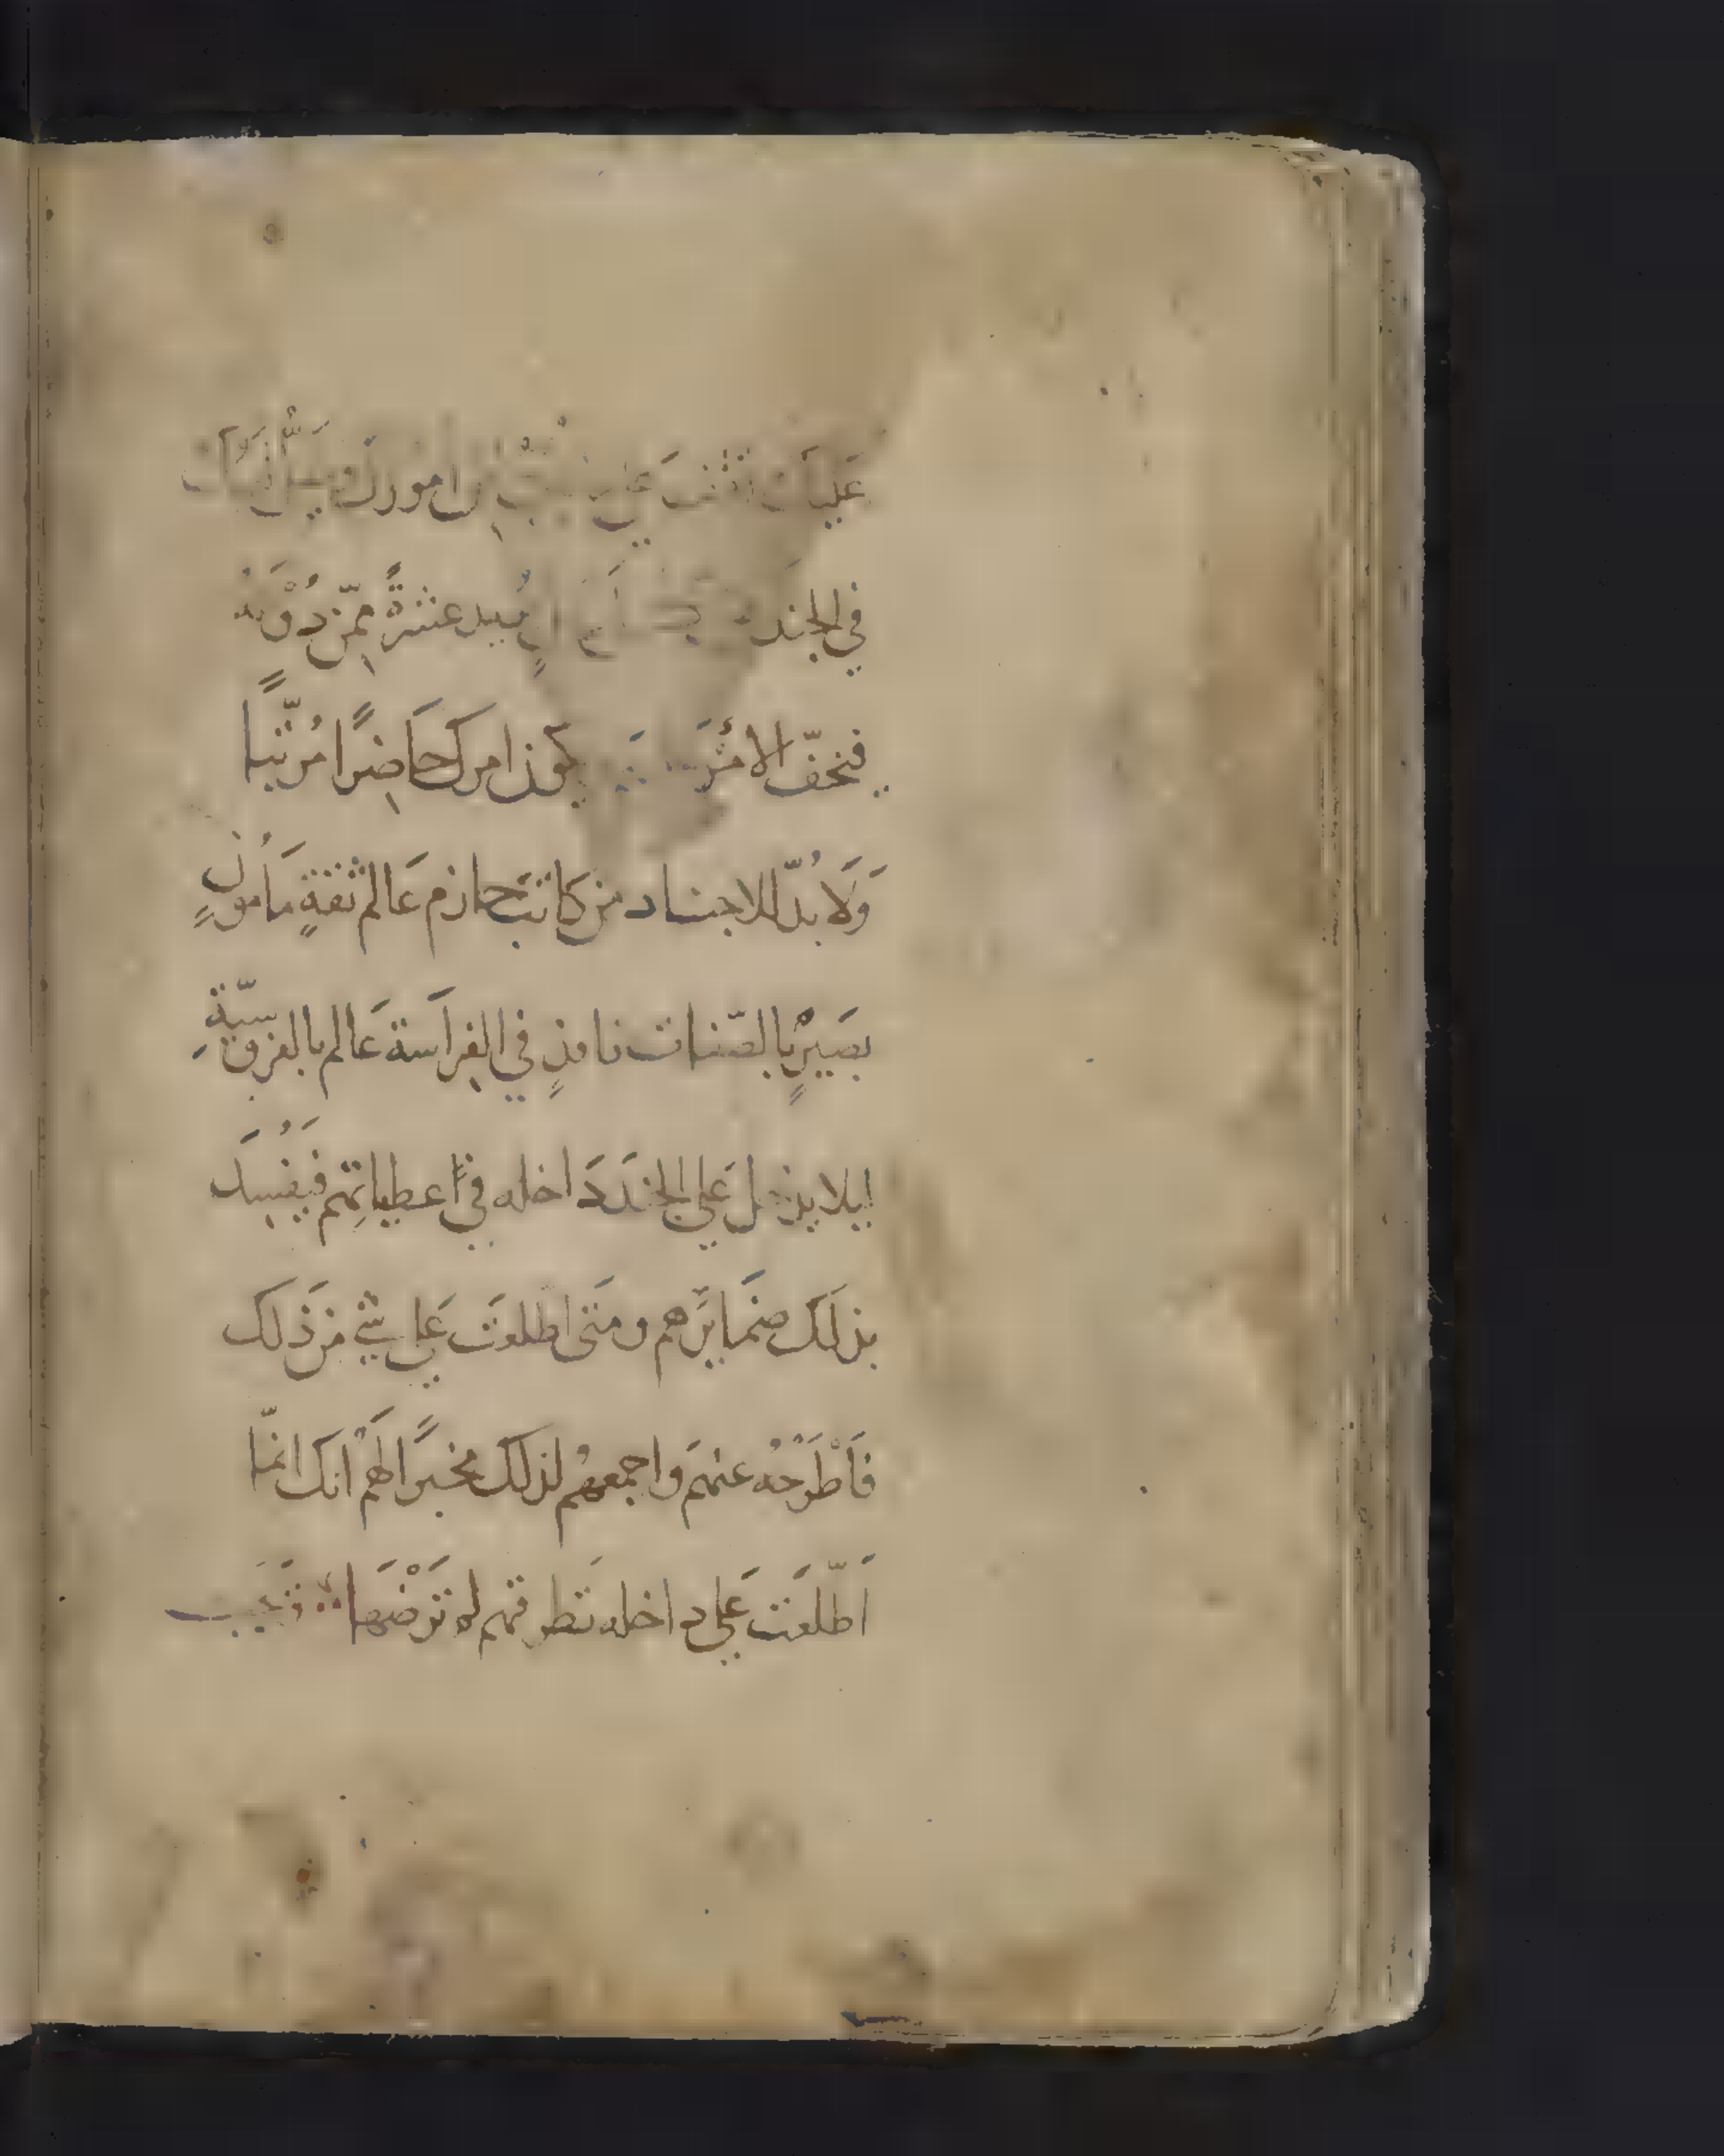 عَليك امورك
في الجند بيد عشرةً مِمّن دُونَه
فيخفّ الامْرَ يكون امرك حَاضِرًا مُرتّبًا
وَلَا بُدّ للاجناد من كَاتب حازم عَالم ثقةٍ مَأمُونٍ
بصَيرٍ بالصّفات نافذٍ في الفِرَاسة عَالم بالفروسيّةِ
ليلا يدخل عَلي الجندَ دَاخله في أعطياتِهم فيُفسِدَ
بذلَك ضمَايرَهم ومَتى اطلعتَ عَلي شي من ذَلك
فَاطْرَحْهُ عنهمَ واجمعهُم لذلك مخبرًا لهَمْ انكَ انمّا
اَطّلعَتَ عَلي داخله تطرقتهم لم تَرْضَهَا ∴ وَيجب